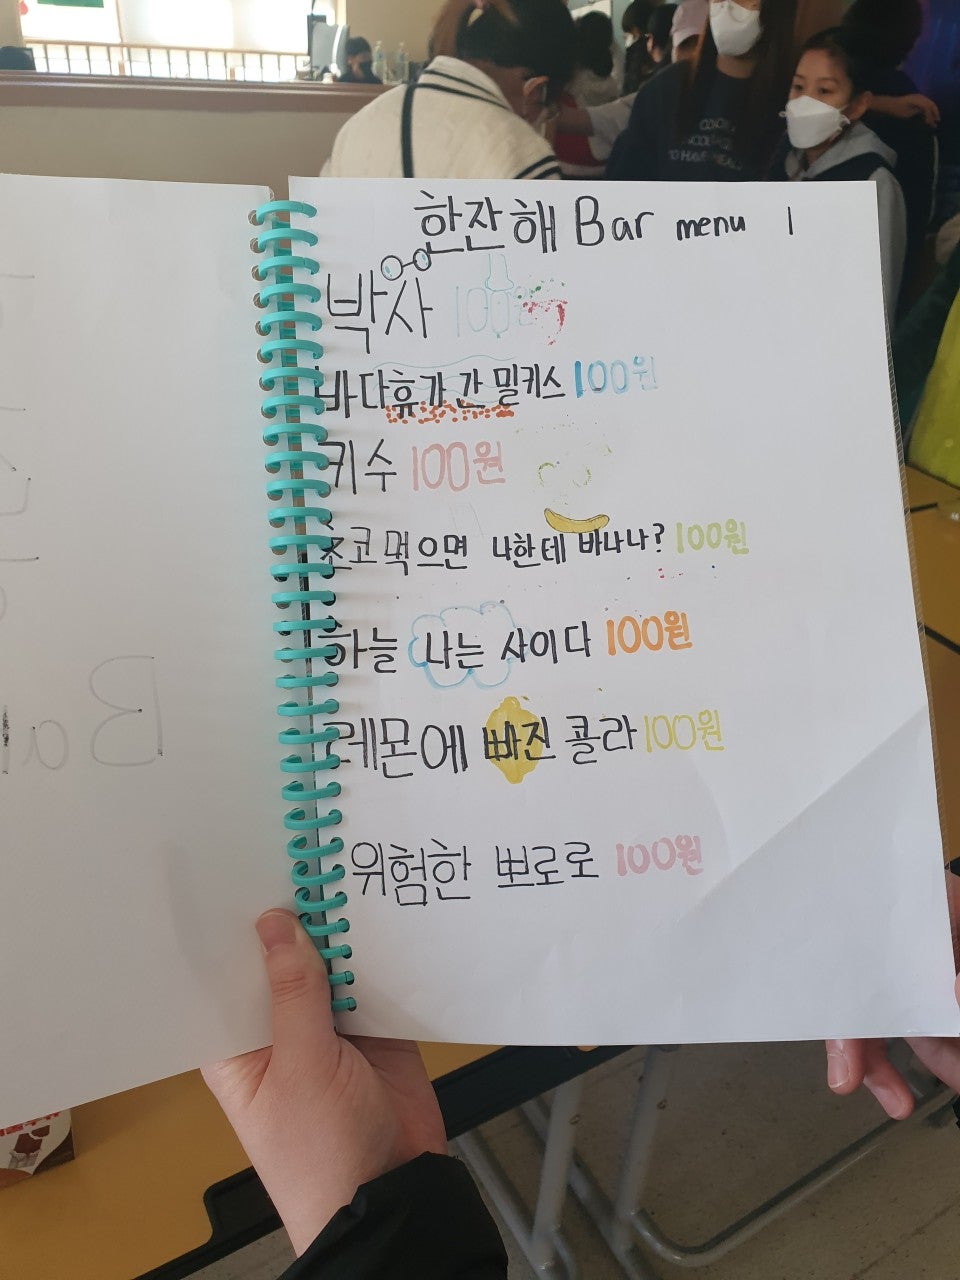 한잔해 Bar menu 1
박사 100원
바다휴가 간 밀키스 100원
키수 100원
초코 먹으면 나한테 바나나? 100원
하늘 나는 사이다 100원
레몬에 빠진 콜라 100원
위험한 뽀로로 100원
Bar